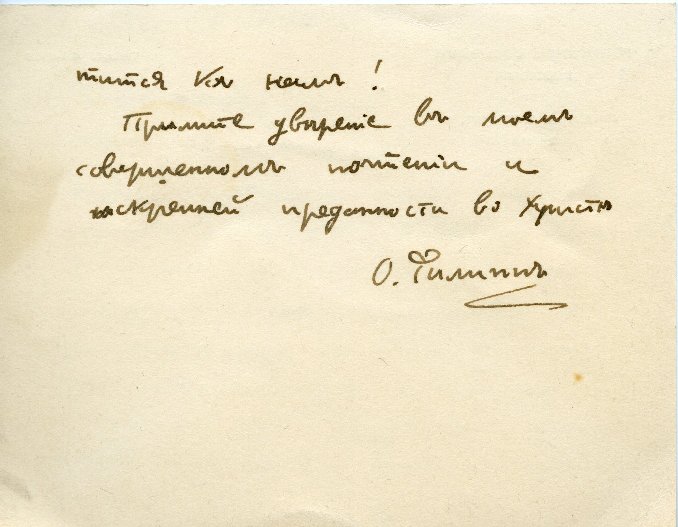 тится къ намъ!
Примите увѣреніе въ моемъ
совершенномъ почтеніи и
искренней преданности во Христѣ
О. Филиппъ